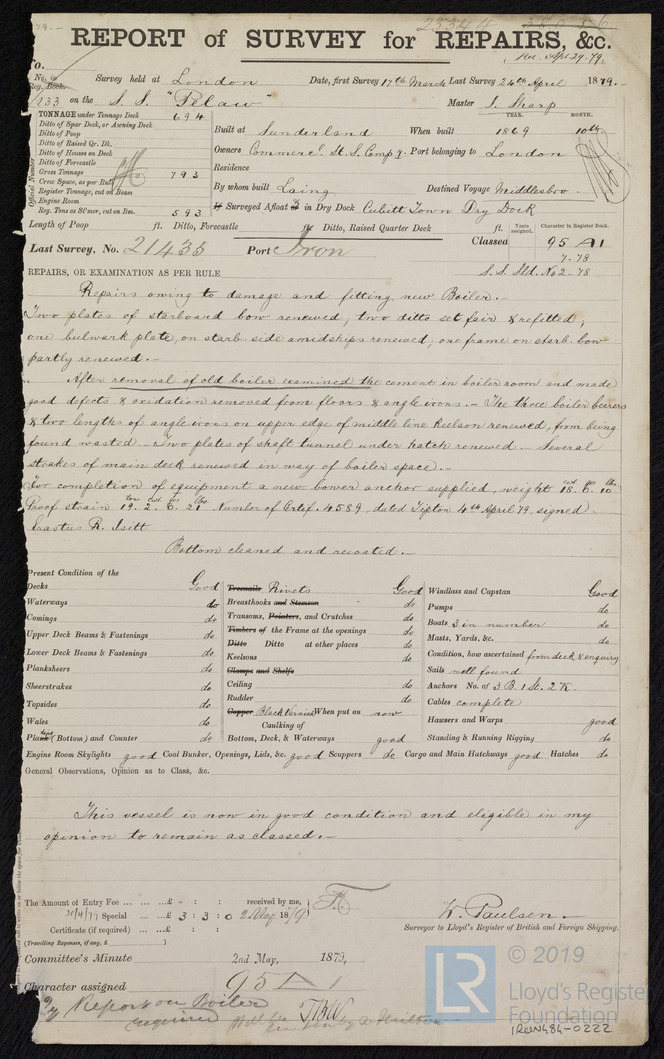 REPORT of SURVEY for REPAIRS, &c.
Rec. Apl 29. 79.
No. in Reg. Book. Survey held at London Date, first Survey 17th March Last Survey 24th April 1879.
233 on the S. S. "Pelaw" Master J. Sharp
TONNAGE under Tonnage Deck 694
Ditto of Spar Deck, or Awning Deck
Ditto of Poop
Ditto of Raised Qr. Dk.
Ditto of Houses on Deck
Ditto of Forecastle
Gross Tonnage 793
Crew Space, as per Rule
Register Tonnage, cut on Beam
Engine Room
Reg. Tons as St'mer, cut on Bm. 593
Official Number
YEAR. MONTH.
Built at Sunderland When built 1869 10th
Owners Commercl. St. S. Compy. Port belonging to London
Residence
By whom built Laing Destined Voyage Middlesboro
If Surveyed Afloat or in Dry Dock Cubitt Town Dry Dock
Length of Poop ft. Ditto, Forecastle ft. Ditto, Raised Quarter Deck ft. Years assigned. Character in Register Book.
Last Survey, No. 21435 Port Iron Classed 95 A1
7-78
S. S. Sld. No 2-78
REPAIRS, OR EXAMINATION AS PER RULE
Repairs owing to damage and fitting new Boiler.-
Two plates of starboard bow renewed; two ditto set fair & refitted;
one bulwark plate, on starb. side amidships renewed; one frame on starb. bow
partly renewed.-
After removal of old boiler examined the cement in boiler room and made
good defects & oxidation removed from floors & angle irons.- The three boiler bearers
& two lengths of angle irons on upper edge of middle line keelson renewed, from being
found wasted.- Two plates of shaft tunnel under hatch renewed.- Several
stoakes of main deck renewed in way of boiler space.-
For completion of equipment a new bower anchor supplied, weight cwt qrs lbs 18. 0. 10
Proof strain ton cwt qrs lbs 19. 2. 0. 21 Number of Certif. 4589, dated Tipton 4th April 79, signed
Erastus R. Isitt
Bottom cleaned and recoated.-
Present Condition of the
Decks Good
Waterways do
Comings do
Upper Deck Beams & Fastenings do
Lower Deck Beams & Fastenings do
Planksheers do
Sheerstrakes do
Topsides do
Wales do
Plank (Bottom) and Counter do
Treenails Rivets Good
Breasthooks and Stemson do
Transoms, Pointers, and Crutches do
Timbers of the Frame at the openings do
Ditto Ditto at other places do
Keelsons do
Clamps and Shelfs
Ceiling do
Rudder do
Copper Black Varnish When put on now
Caulking of
Bottom, Deck, & Waterways good
Windlass and Capstan Good
Pumps do
Boats 3 in number do
Masts, Yards, &c. do
Condition, how ascertained from deck & enquiry
Sails well found
Anchors No. of 3 B. 1 St. 2 K.
Cables complete
Hawsers and Warps good
Standing & Running Rigging do
Engine Room Skylights good Coal Bunker, Openings, Lids, &c. good Scuppers do Cargo and Main Hatchways good Hatches do
General Observations, Opinion as to Class, &c.
This vessel is now in good condition and eligible in my
opinion to remain as classed.-
The Amount of Entry Fee ... £ - : : received by me,
30/4/79 Special ... £ 3 : 3 : 0 2 May 1879
Certificate (if required) ... £ : :
(Travelling Expenses, if any, £ )
W. Paulsen.-
Surveyor to Lloyd's Register of British and Foreign Shipping.
Committee's Minute 2nd May, 1879,
Character assigned 95 A 1
Report on Boiler
required
© 2019
LR
Lloyd's Register
Foundation
IRON484-0222